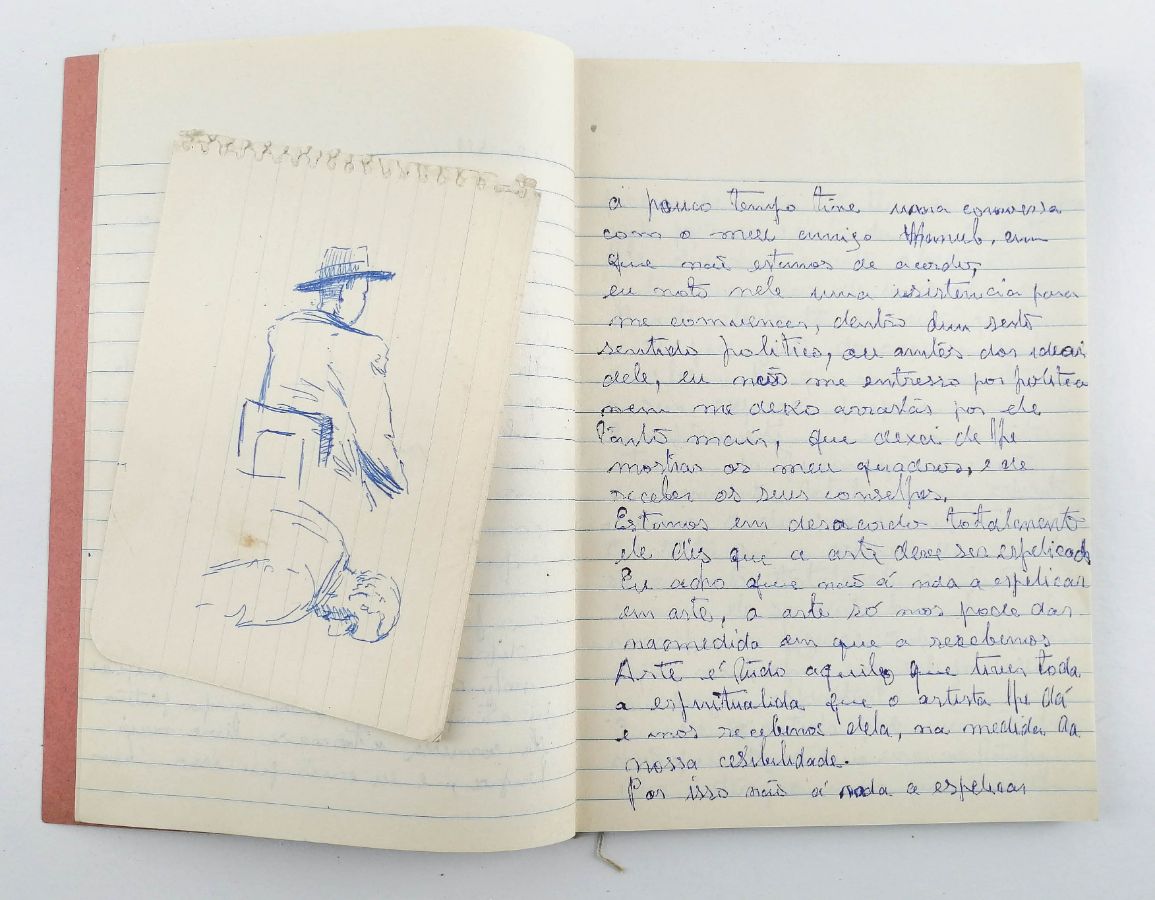 á pouco tempo tive uma conversa
com o meu amigo Manuel, em
que não estamos de acordo,
eu noto nele uma resistencia para
me comvencer, dentro dum serto
sentido politico, ou antes das ideias
dele, eu não me entresso por politica
nem me deixo arrastar por ele
Tanto mais, que dexei de lhe
mostrar os meu quadros, e de
receber os seus conselhos.
Estamos em desacordo totalmente
ele dis que a arte deve ser espelicada
Eu acho que não á nda a espelicar
em arte, a arte só nos pode dar
namedida em que a resebemos
Arte é tudo aquilo que tiver toda
a espritualida que o artista lhe dá
e nos recebemos dela, na medida da
nossa cesibilidade.
Por isso não á nada a espelicar